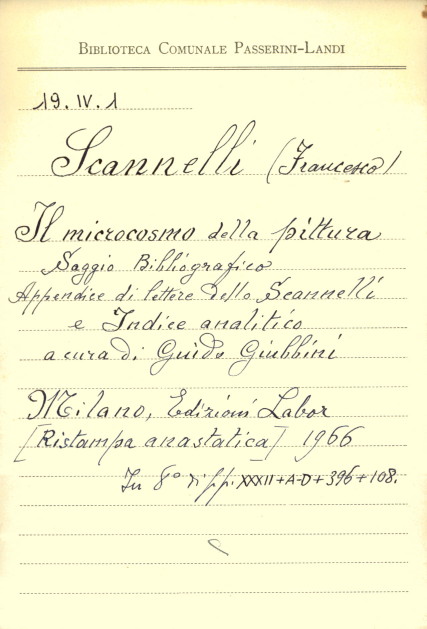 BIBLIOTECA COMUNALE PASSERINI-LANDI
19. IV. 1
Scannelli (Francesco)
Il microcosmo della pittura
Saggio Bibliografico
Appendice di lettere dello Scannelli
e Indice analitico
a cura di Guido Giubbini
Milano, Edizioni Labor
[Ristampa anastatica] 1966
In 8° di pp. XXXII+A-D+396+108.